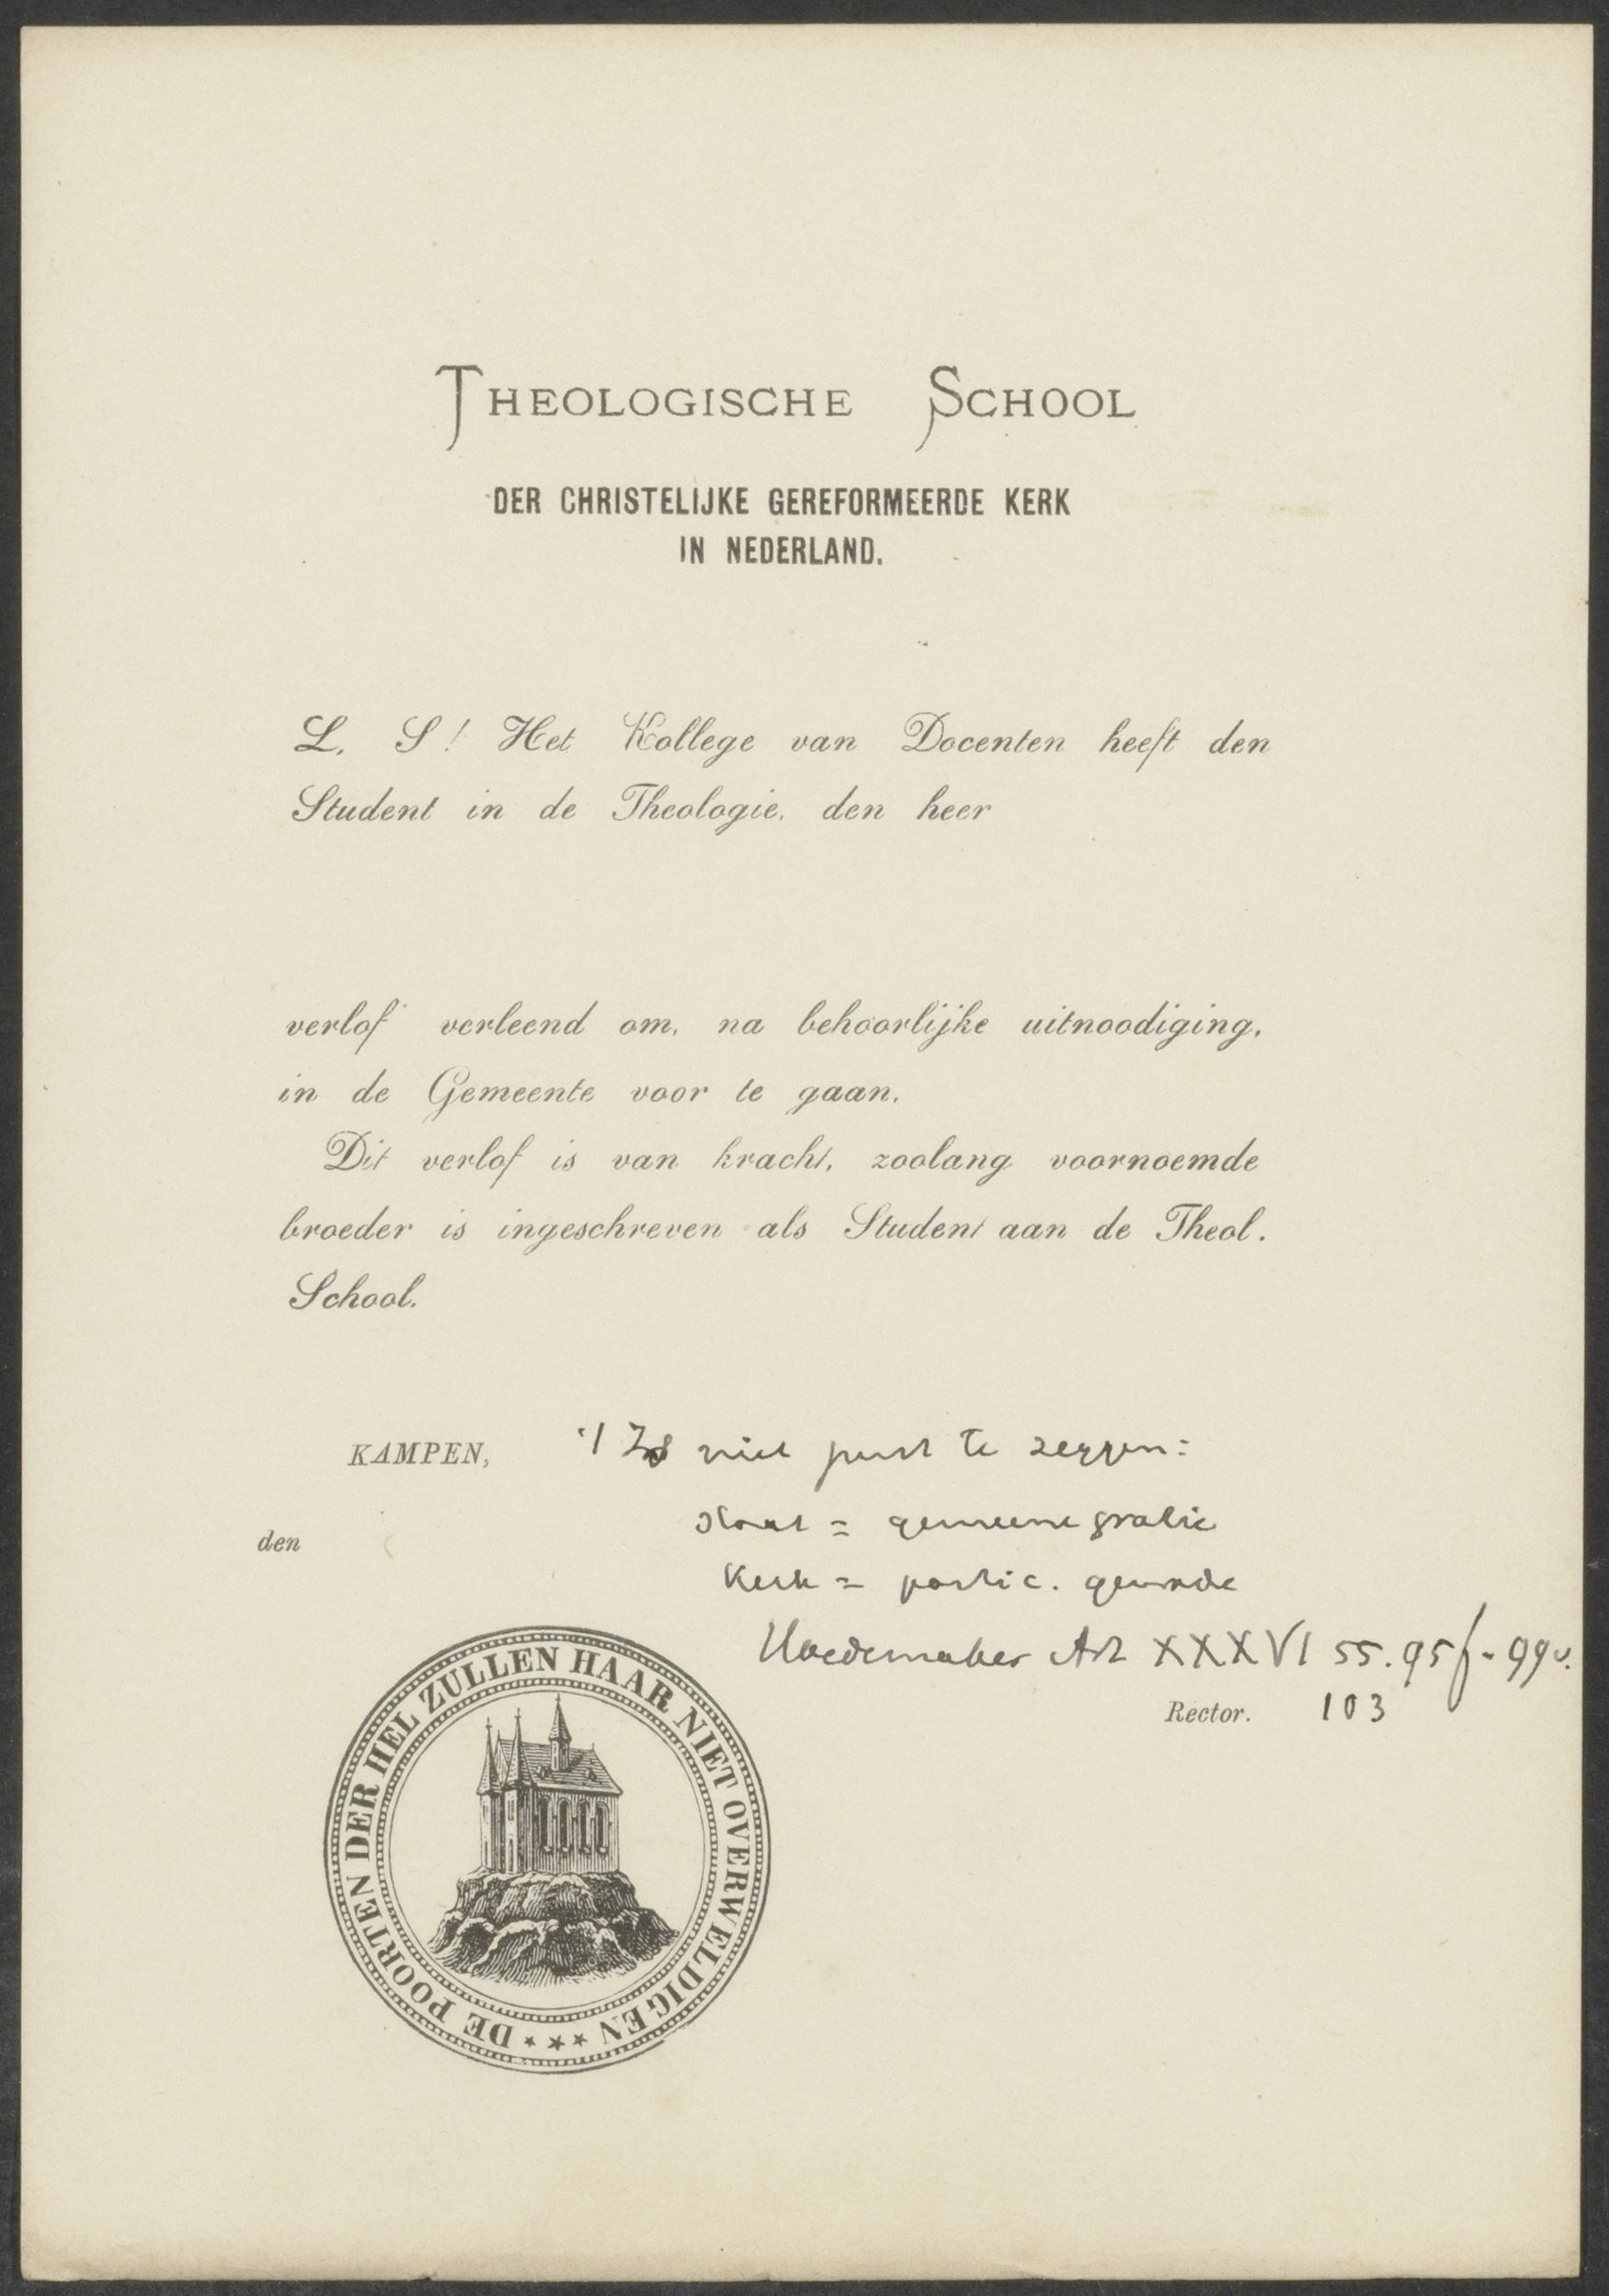 THEOLOGISCHE SCHOOL
DER CHRISTELIJKE GEREFORMEERDE KERK
IN NEDERLAND.
L. S! Het Kollege van Docenten heeft den
Student in de Theologie, den heer
verlof verleend om, na behoorlijke uitnoodiging,
in de Gemeente voor te gaan.
Dit verlof is van kracht, zoolang voornoemde
broeder is ingeschreven als Student aan de Theol.
School.
KAMPEN,
't Is niet juist te zeggen:
den
Staat = gemeene gratie
Kerk = partic. genade
Hoedemaker Art XXXVI 55. 95f - 99v.
Rector. 103
DE POORTEN DER HEL ZULLEN HAAR NIET OVERWELDIGEN